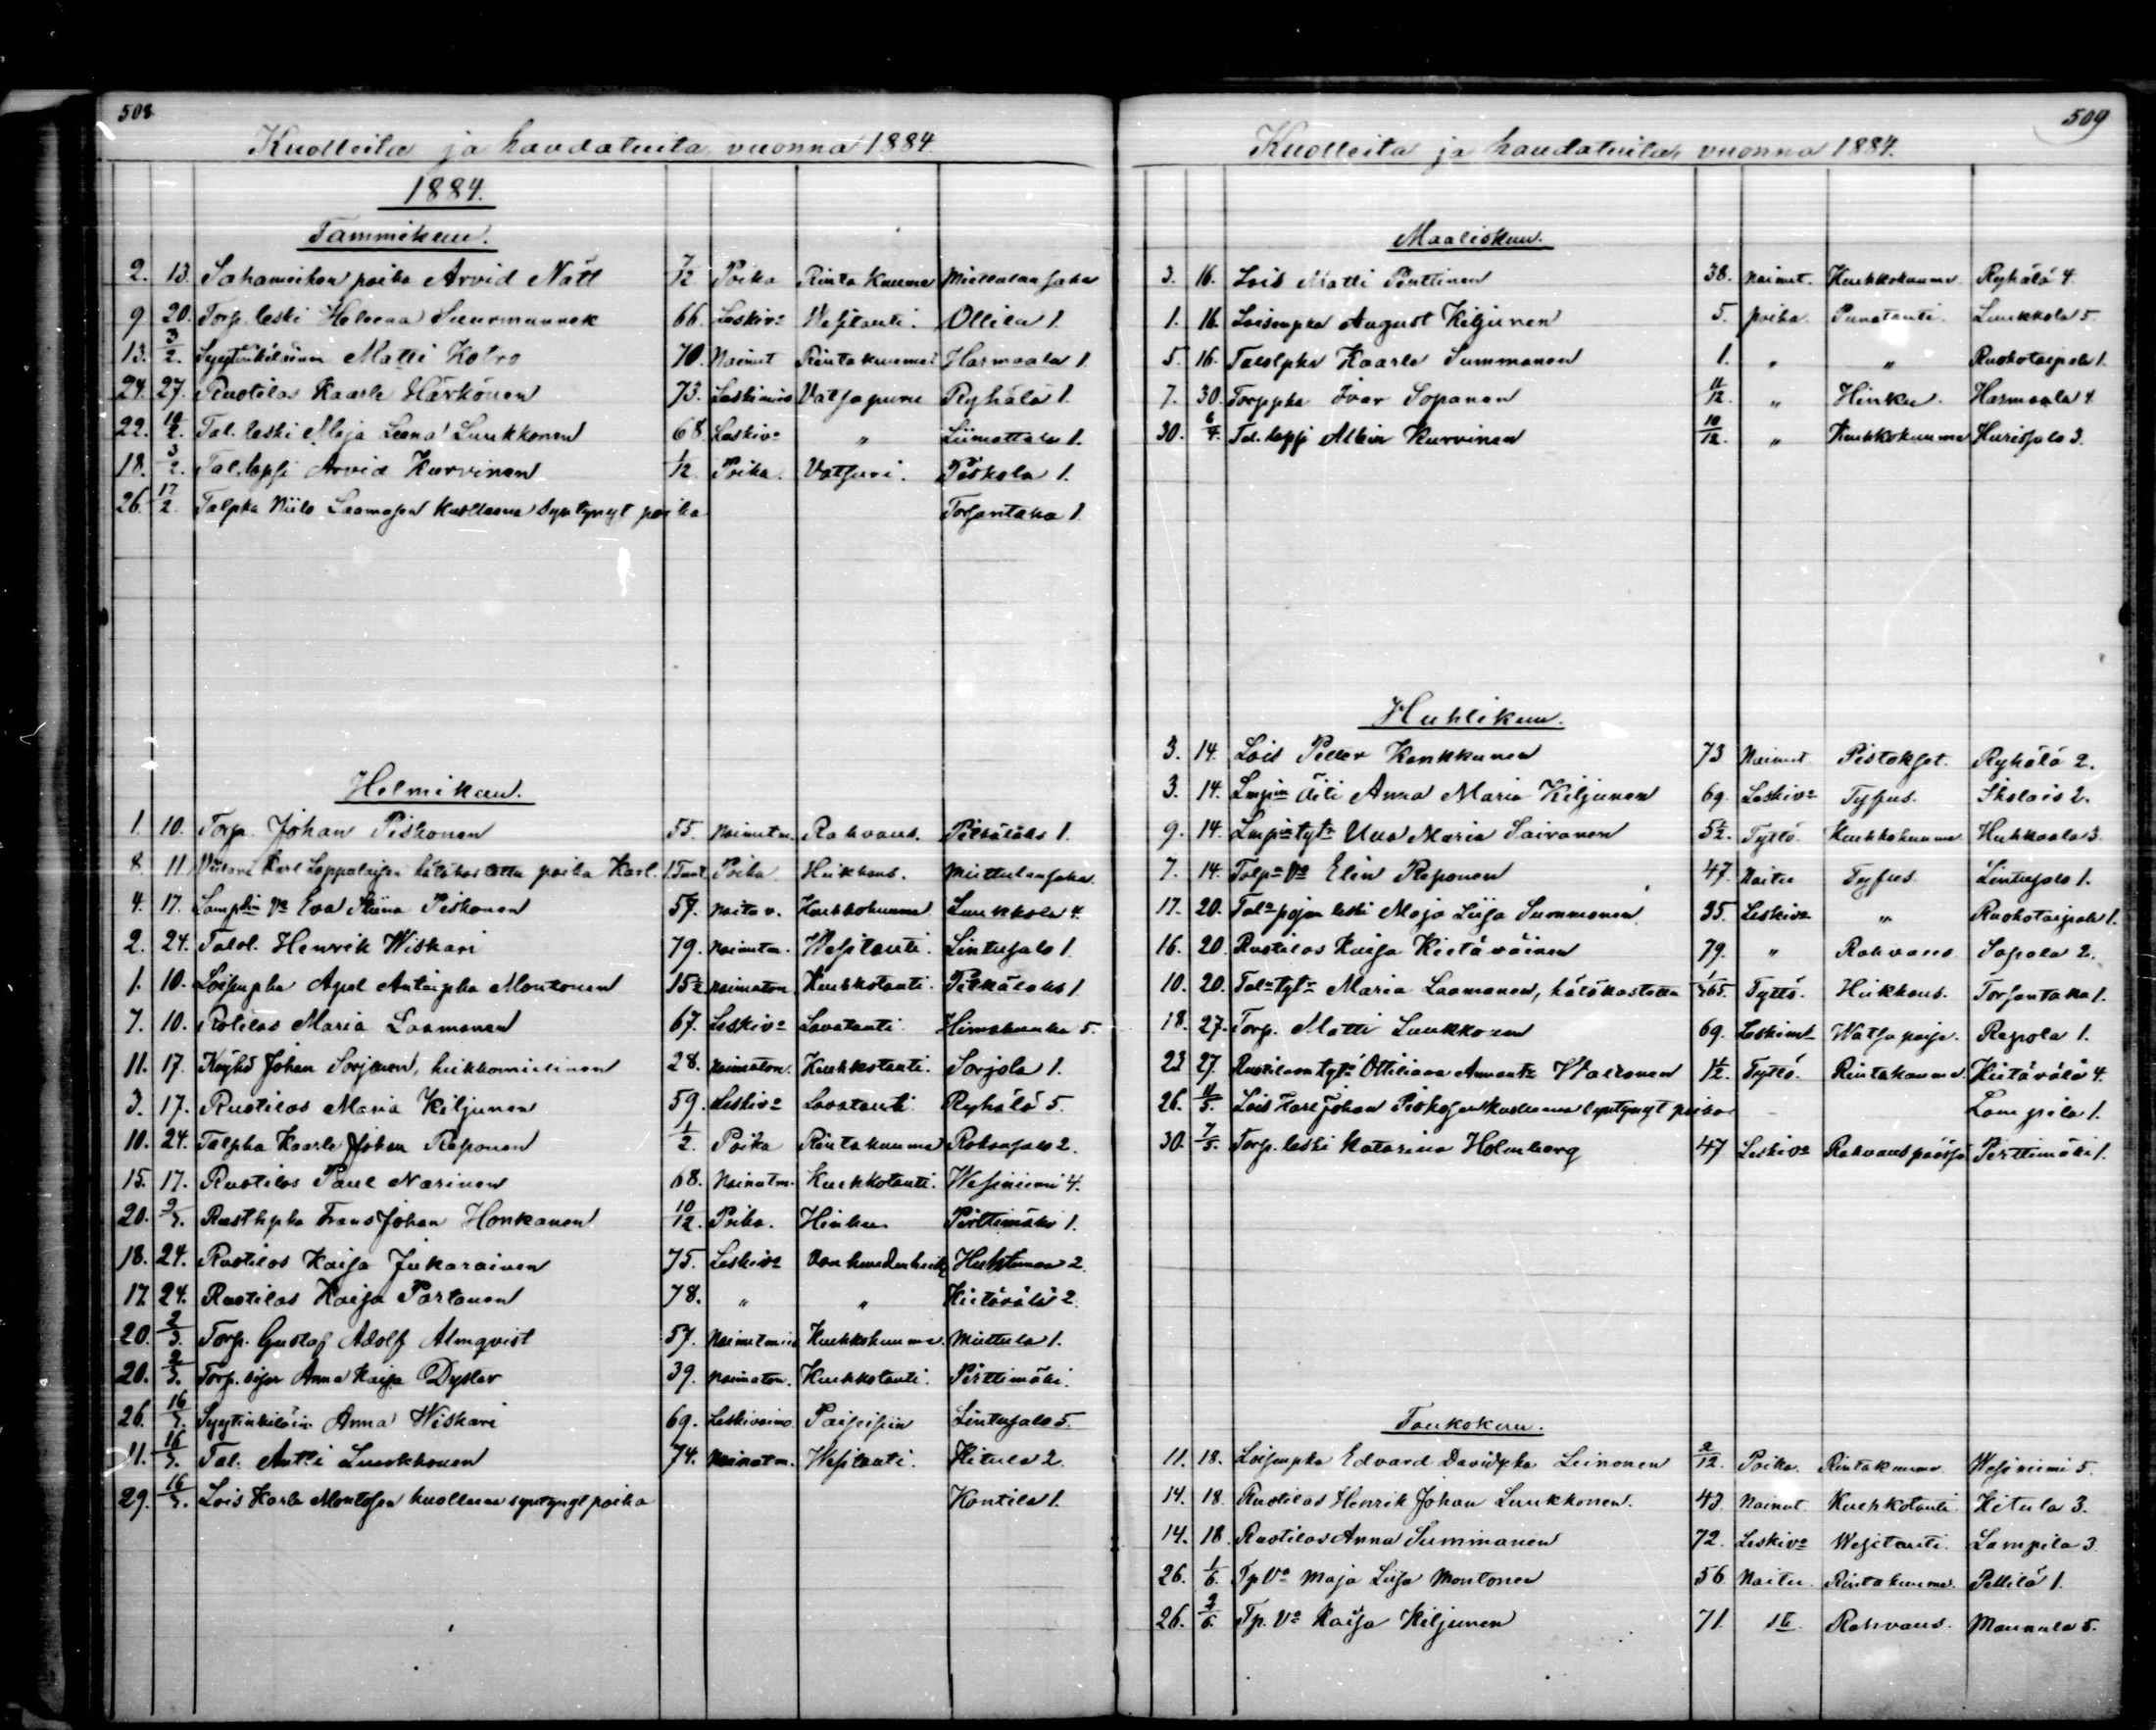 508
Kuolleita ja haudatuita vuonna 1884.
1884.
Tammikuu.
2. 13. Sahamiehen poika Arvid Nätt 7/12 Poika Rintakuume Miettulan saha
9 20. Torp. leski Helena Suurmunnek 66. Leskiva Wesitauti. Ollila 1.
13. 3/2. Syytinkiläinen Matti Kotro 70. Nainut Rintakuume Harmaala 1.
24. 27. Rustilas Kaarle Härkönen 73. Leskimies Vatsapuru Ryhälä 1.
22. 10/2. Tal. leski Maja Leena Luukkonen 68 Leskiva " Liimattala 1.
18. 3/2. Tal. lapsi Arvid Kurvinen 1/12 Poika. Vatsuri. Piskola 1.
26. 17/2. Talpka Niilo Laamasen kuolleena syntynyt poika Torsantaka 1.
Helmikuu.
1. 10. Torp. Johan Piskonen 55. Nainut m. Rahvaus. Pitkälahs 1.
8. 11. Karl Loppolaisen hätäkastettu poika Karl. 1 Tunt. Poika Hiukkaus. Miettulan saha.
4. 17. Lampn va Eva Stiina Piskonen 57. Naitu v. Keuhkokuume Luukkola 4.
2. 24. Talol. Henrik Wiskari 79. Nainut m. Wesitauti. Lintusalo 1.
1. 10. Loisenpka Apel Antinpka Montonen 15 1/2 Naimaton Keuhkotauti. Pitkälahs 1.
7. 10. Rotilas Maria Laamanen 67. Leskiva Lavatauti Himahuuha 5.
11. 17. Köyhä Johan Sorjonen, heikkomielinen 28. Naimaton. Keuhkotauti. Sorjola 1.
3. 17. Rustilas Maria Kiljunen 59. Leskiva Lavatauti Ryhälä 5.
10. 24. Talpka Kaarle Johan Reponen 1/2. Poika Rintakuume Rokansalo 2.
15. 17. Rustilas Paul Narinen 68. Nainut m. Keuhkotauti. Wesiniemi 4.
20. 2/3. Rustlpka Frans Johan Honkanen 10/12. Poika. Hinku Pirttimäki 1.
18. 24. Rustilas Kaisa Jukarainen 75. Leskiva Vanhuudenheik. Huhtimaa 2.
17. 24. Rustilas Kaisa Partanen 78. " " Kietävälä 2.
20. 2/3. Torp. Gustaf Adolf Almqvist 57. Nainut mies Keuhkokuume. Miettula 1.
20. 2/3. Torp. sisar Anna Kaisa Dyster 39. Naimaton. Keuhkotauti. Pirttimäki.
26. 16/3. Syytinkiläin. Anna Wiskari 69. Leskivaimo Paiseisiin Lintusalo 5.
11. 16/3. Tal. Antti Luukkonen 74. Nainut m. Wesitauti. Kitula 2.
29. 16/3. Lois Karle Montosen kuolleena syntynyt poika Kontila 1.
509
Kuolleita ja haudatuita vuonna 1884.
Maaliskuu.
3. 16. Lois Matti Penttinen 38. Nainut. Keuhkokuume. Ryhälä 4.
1. 16. Loisenpka August Kiljunen 5. poika. Punatauti. Luukkola 5.
5. 16. Talolpka Kaarle Summanen 1. " " Ruokotaipale 1.
7. 30. Torppka Ivar Sopanen 11/12 " Hinku. Harmaala 4.
30. 6/4. Tal. lapsi Albin Kurvinen 10/12. " Keuhkokuume Kurissalo 3.
Huhtikuu.
3. 14. Lois Petter Konkkunen 73 Nainut Pistokset. Ryhälä 2.
3. 14. Lmpin Äiti Anna Maria Kiljunen 69. Leskiva Tyfus. Skolais 2.
9. 14. Lmpin tytr Una Maria Sairanen 5 1/2. Tyttö. Keuhkokuume Hukkaala 3.
7. 14. Talpn Va Elin Reponen 47. Naitu Tyfus. Lintusalo 1.
17. 20. Taln pojan leski Maja Liisa Summanen 35. Leskiva " Ruokotaipale 1.
16. 20. Rustilas Kaisa Kietäväinen 79. " Rahvaus Sapola 2.
10. 20. Taln tytr Maria Laamanen, hätäkastettu 1/365. Tyttö. Hiukkaus. Torsantaka 1.
18. 27. Torp. Matti Luukkonen 69. Leskimt Watsapaise. Repola 1.
23 27. Rustilaan tytr Ottiliana Amanta Valtonen 1 1/2. Tyttö. Rintakuume. Kietävälä 4.
26. 11/5. Lois Karl Johan Piskosen kuolleena syntynyt poika Lampila 1.
30. 7/5. Torp. leski Katarina Holmberg 47 Leskiva Rahvaus päässä Pirttimäki 1.
Toukokuu.
11. 18. Loisenpka Edvard Davidpka Leinonen 2/12. Poika. Rintakuume Wesiniemi 5.
14. 18. Rustilas Henrik Johan Luukkonen. 43. Nainut Keuhkotauti. Kitula 3.
14. 18. Rustilas Anna Summanen 72. Leskiva Wesitauti. Lampila 3.
26. 1/6. Tp Va Maja Liisa Montonen 56 Naitu. Rintakuume. Pellilä 1.
26. 2/6. Tp. Va Kaisa Kiljunen 71. Rahvaus. Maunula 5.